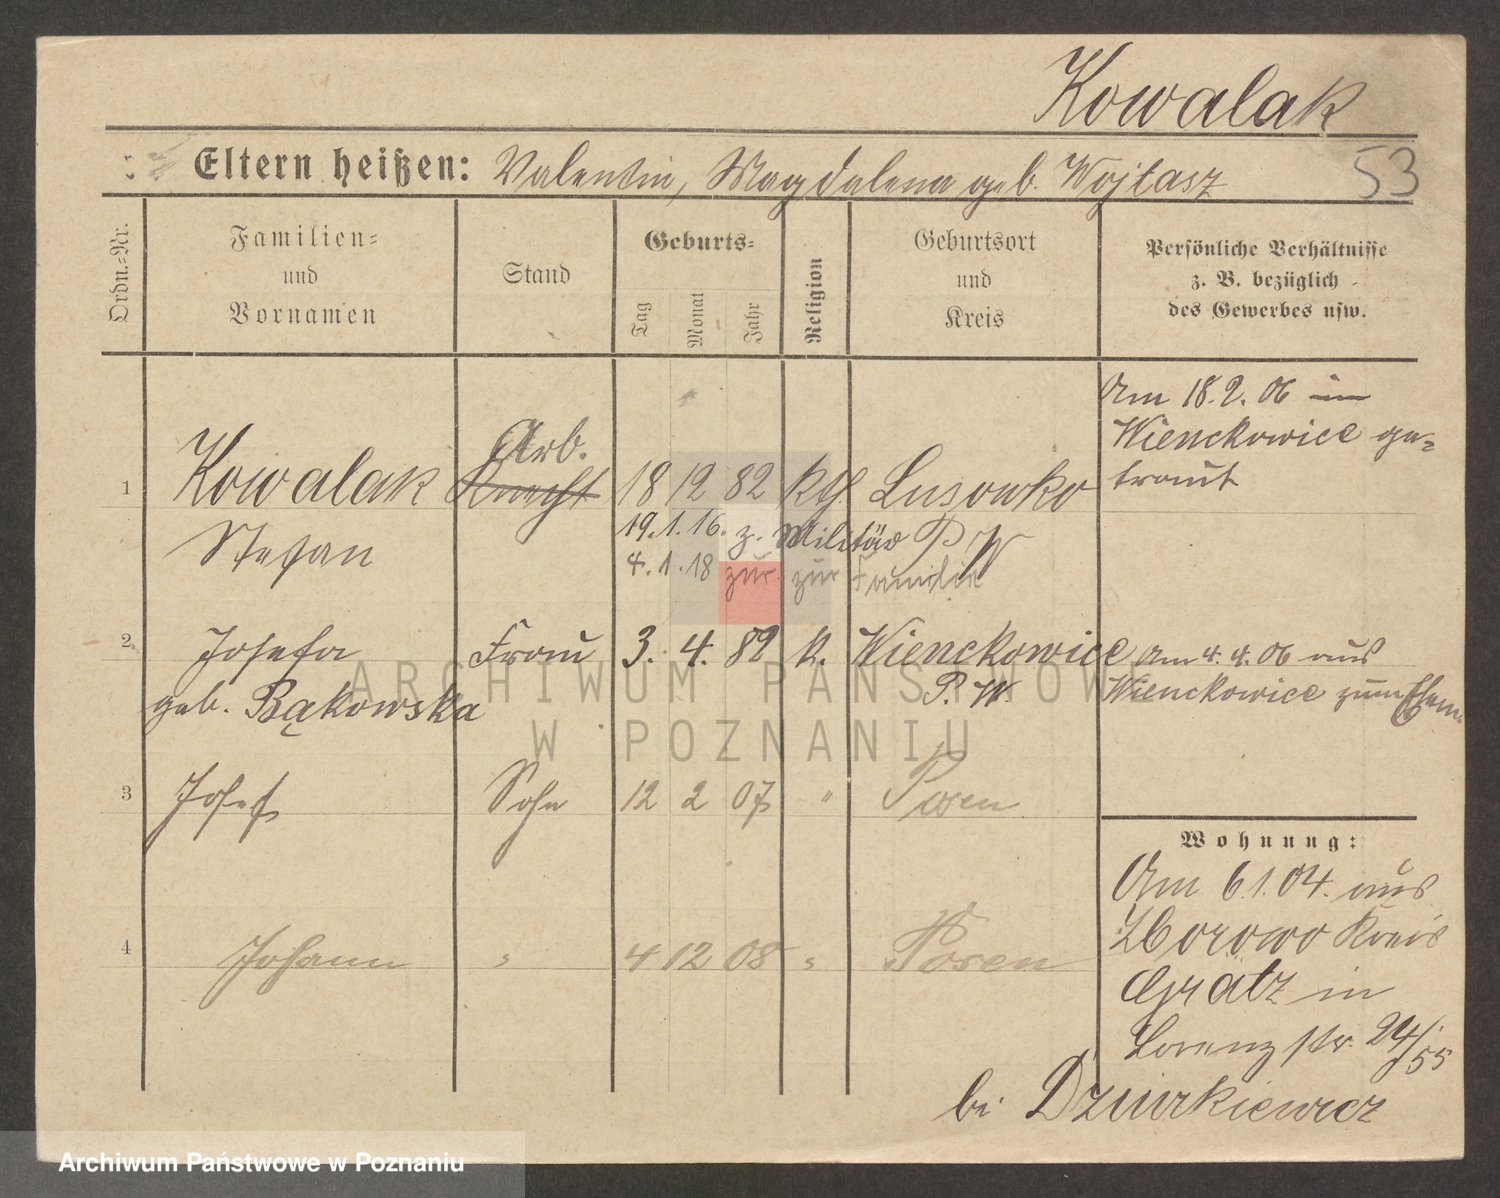 Kowalak
53
Eltern heißen: Valentin, Magdalena geb. Wojtasz
Ordn.-Nr.
Familien- und Vornamen
Stand
Geburts-
Tag
Monat
Jahr
Religion
Geburtsort und Kreis
Persönliche Verhältnisse
z. B. bezüglich
des Gewerbes usw.
Am 18.2.06 in
Wienckowice ge-
traut
Arb.
1 Kowalak Knecht 18 12 82 kth Lusowko
19.1.16. z. Militär P W
Stefan
4.1.18 zur. zur Familie
2 Josefa Frau 3. 4. 89 k. Wienckowice Am 4.4.06 aus
geb. Bąkowska P. W. Wienckowice zum Ehem.
ARCHIWUM PAŃSTWOWE
W POZNANIU
3 Josef Sohn 12 2 07 " Posen
Wohnung:
Am 6.1.04. aus
Zborowo Kreis
4 Johann " 4 12 08 " Posen
Grätz in
Lorenzstr. 24/55
bei Dziurkiewicz
Archiwum Państwowe w Poznaniu